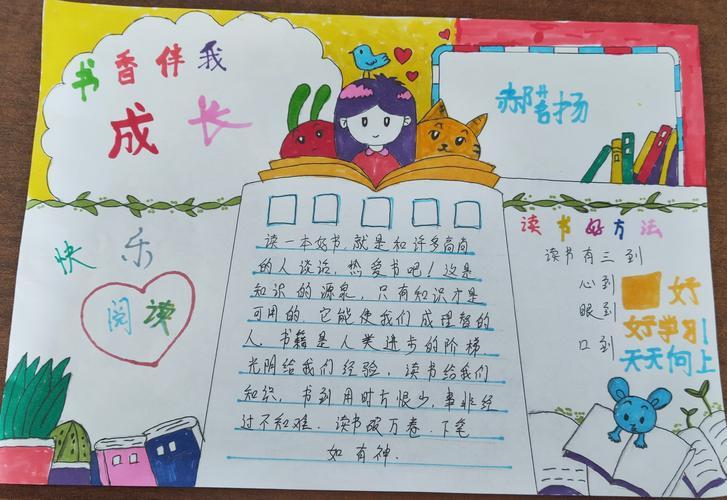 书香伴我
成长
快乐
阅读
读一本好书,就是和许多高尚
的人谈话,热爱书吧!这是
知识的源泉,只有知识才是
可用的.它能使我们成理智的
人.书籍是人类进步的阶梯.
光阴给我们经验,读书给我们
知识,书到用时方恨少,事非经
过不知难.读书破万卷.下笔
如有神.
读书好方法
读书有三到
心到
眼到
口到
好
好学习!
天天向上